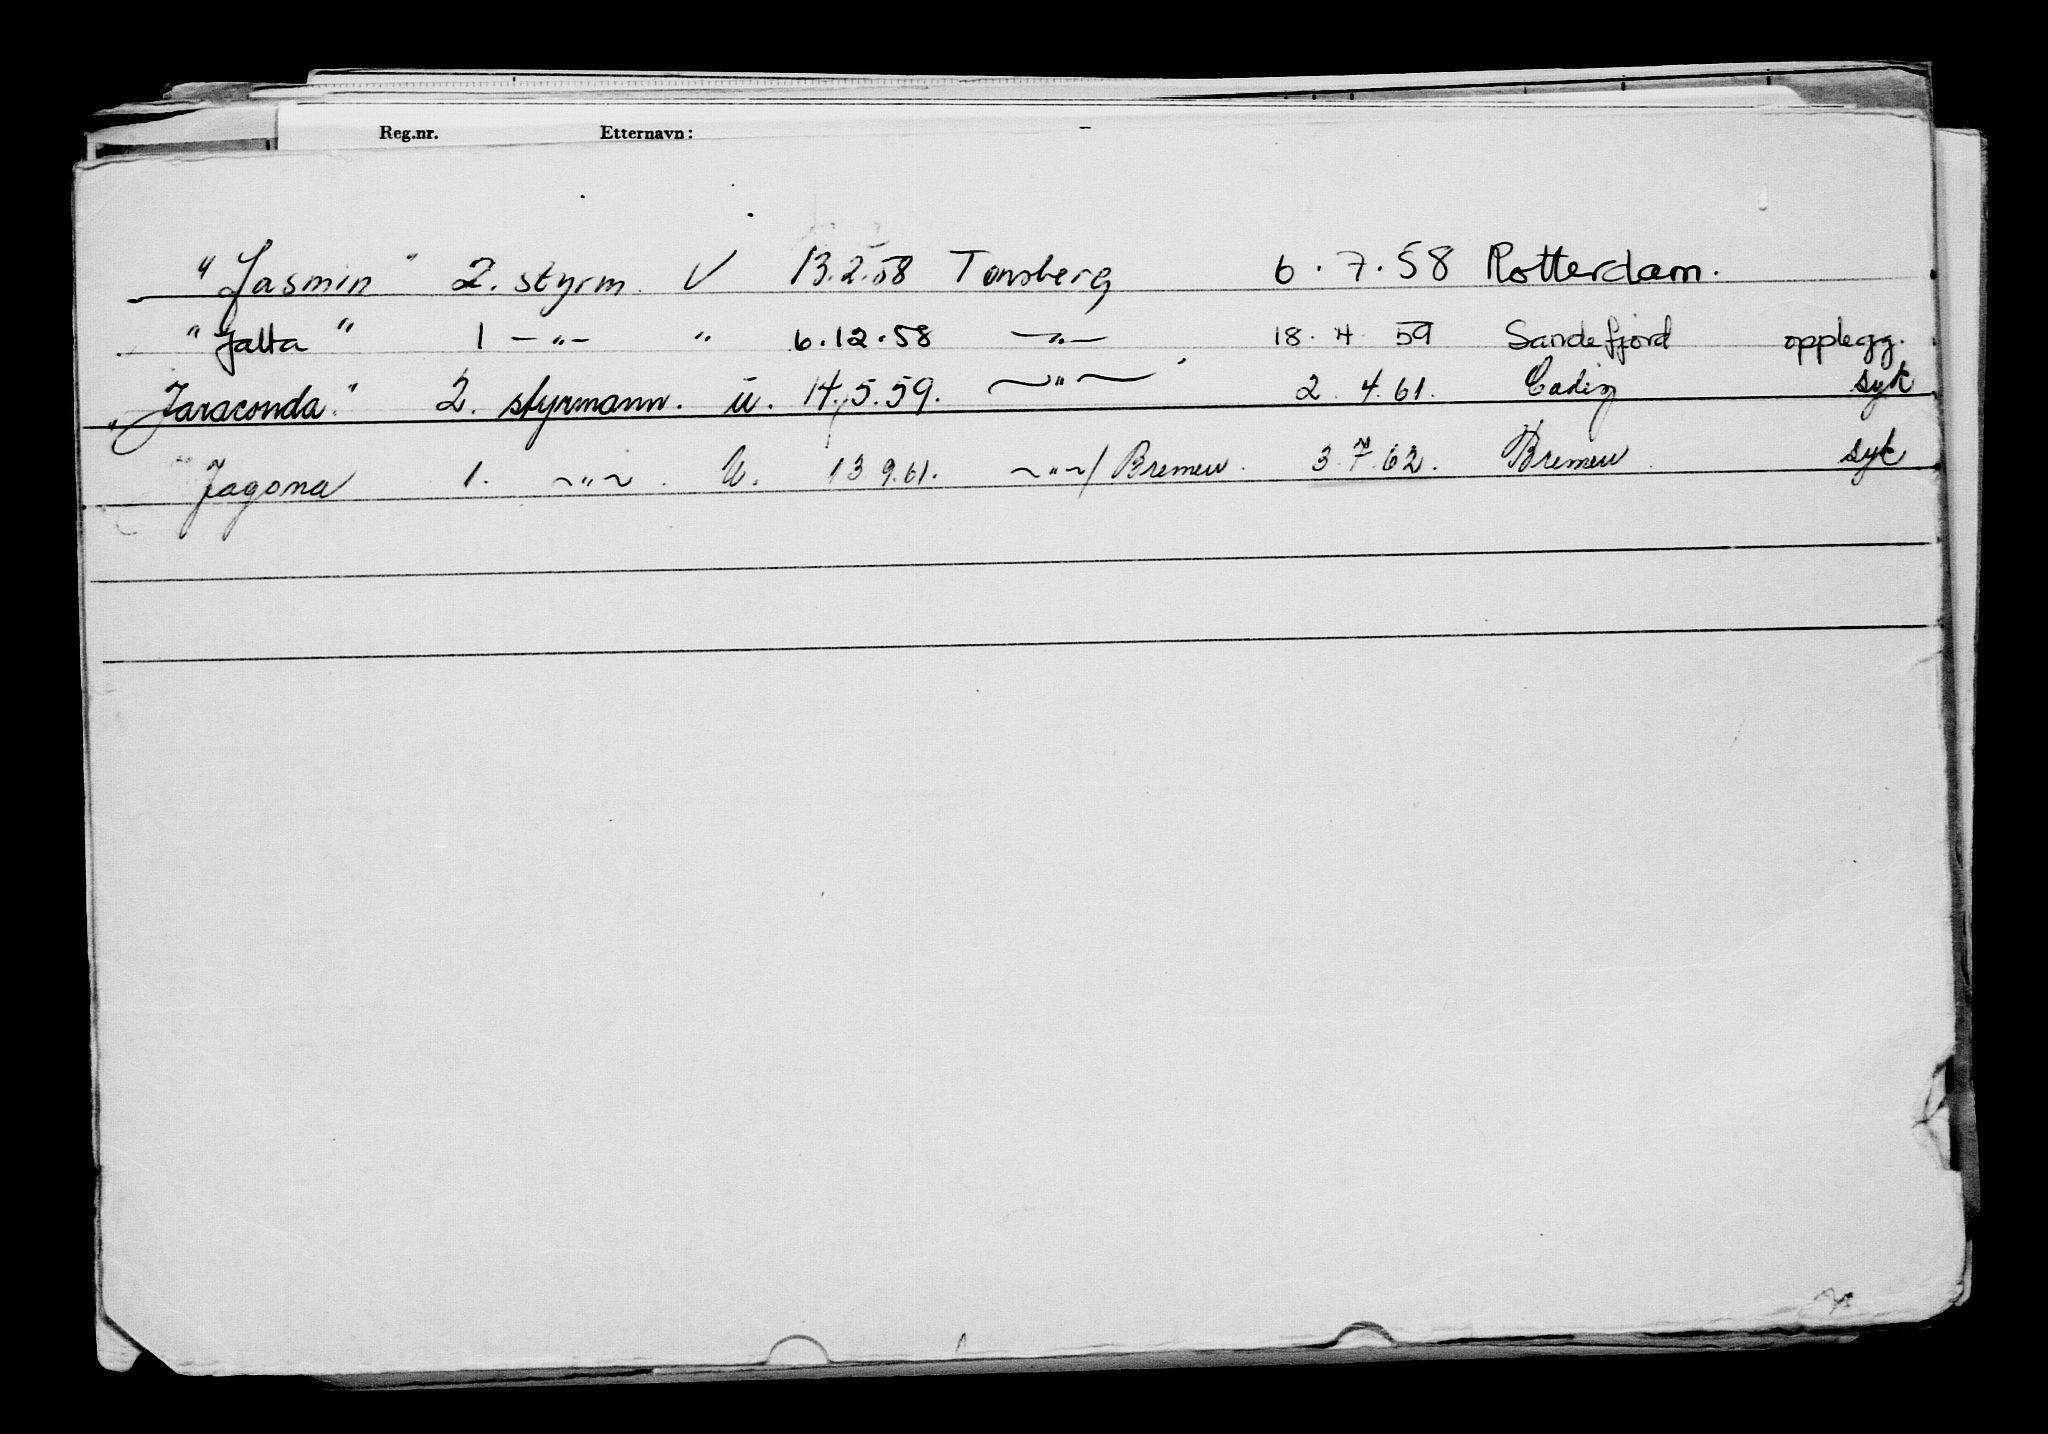 Reg.nr. Etternavn:
"Jasmin" 2. styrm. V 13.2.58 Tønsberg 6.7.58 Rotterdam.
"Jalta" 1 -"- " 6.12.58 -"- 18.4.59 Sandefjord opplegg.
"Jaraconda" 2. styrmann. u. 14.5.59. -"- 2.4.61. Cadiz syk
Jagona 1. -"-. U. 13 9.61. -"-/ Bremen. 3.7.62. Bremen. syk